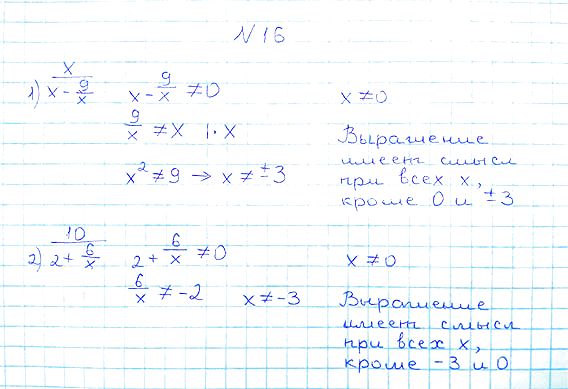 N 16
1) x / (x - 9/x)   x - 9/x ≠ 0   x ≠ 0
9/x ≠ x   | · x   Выражение
имеет смысл
x² ≠ 9 → x ≠ ±3   при всех x,
кроме 0 и ±3
2) 10 / (2 + 6/x)   2 + 6/x ≠ 0   x ≠ 0
6/x ≠ -2   x ≠ -3   Выражение
имеет смысл
при всех x,
кроме -3 и 0